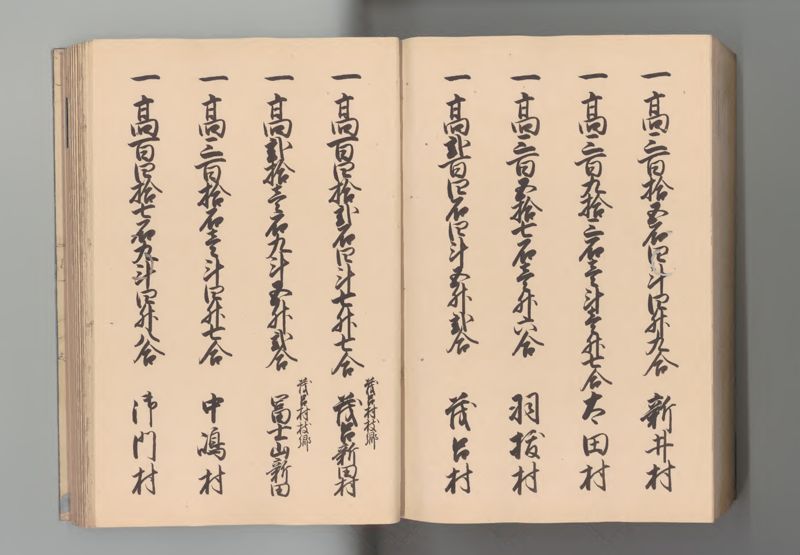 一高三百拾五石四斗四升九合 新井村
一高三百九拾三石壱斗壱升七合 太田村
一高三百五拾七石壱升六合 羽抜村
一高弐百四石四斗五升弐合 茂呂村
一高百四拾弐石四斗七升七合 茂呂新田村
茂呂村枝郷
一高弐拾壱石九斗五升弐合 冨士山新田
茂呂村枝郷
一高三百拾石壱斗四升七合 中嶋村
一高百四拾七石九斗四升八合 沣門村